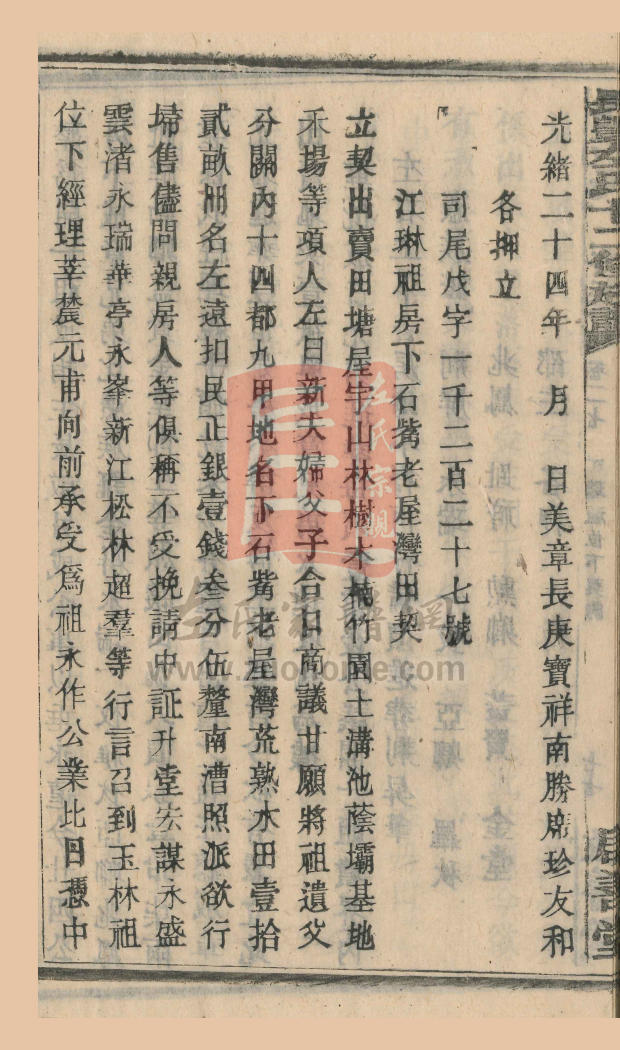 光緒二十四年　月　日美章長庚寶祥南勝席珍友和
各押立
司尾戊字一千二百二十七號
江琳祖房下石觜老屋灣田契
立契出賣田塘屋宇山林樹木楠竹園土溝池蔭壩基地
禾場等項人左日新夫婦父子合口商議甘願將祖遺父
分關內十四都九甲地名下石觜老屋灣荒熟水田壹拾
貳畝册名左遠扣民正銀壹錢叁分伍釐南漕照派欲行
埽售儘問親房人等俱稱不受挽請中証升堂宏謀永盛
雲渚永瑞華亭永峯新江松林超羣等行言召到玉林祖
位下經理莘農元甫向前承受爲祖永作公業比日憑中
左氏宗親
www.zuohome.com